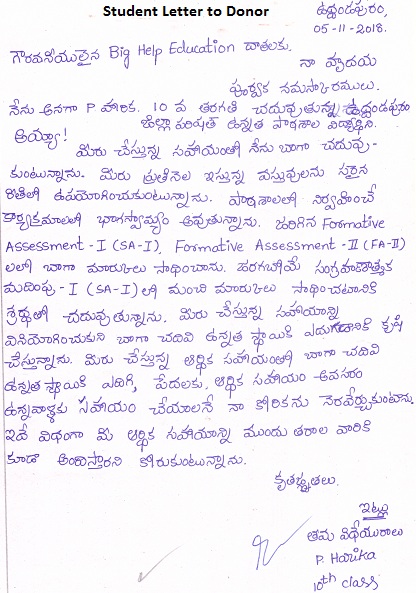 Student Letter to Donor
ఉద్దండపురం,
05-11-2018.
గౌరవనీయులైన Big Help Education దాతలకు.
నా హృదయ
పూర్వక నమస్కారములు.
నేను అనగా P. హారిక. 10 వ తరగతి చదువుతున్న ఉద్దండపురం
జిల్లా పరిషత్ ఉన్నత పాఠశాల విద్యార్థిని.
అయ్యా!
మీరు చేస్తున్న సహాయంతో నేను బాగా చదువు-
కుంటున్నాను. మీరు ప్రతినెల ఇస్తున్న వస్తువులను సరైన
రీతిలో ఉపయోగించుకుంటున్నాను. పాఠశాలలో నిర్వహించే
కార్యక్రమాలలో భాగస్వామ్యం అవుతున్నాను. జరిగిన Formative
Assessment - I (SA-I), Formative Assessment - II (FA-II)
లలో బాగా మార్కులు సాధించాను. జరగబోయే సంగ్రహణాత్మక
మదింపు - I (SA-I) లో మంచి మార్కులు సాధించటానికి
శ్రద్ధతో చదువుతున్నాను. మీరు చేస్తున్న సహాయాన్ని
వినియోగించుకుని బాగా చదివి ఉన్నత స్థాయికి ఎదగడానికి కృషి
చేస్తున్నాను. మీరు చేస్తున్న ఆర్థిక సహాయంతో బాగా చదివి
ఉన్నత స్థాయికి ఎదిగి, పేదలకు, ఆర్థిక సహాయం అవసరం
ఉన్నవాళ్లకు సహాయం చేయాలనే నా కోరికను నెరవేర్చుకుంటాను.
ఇదే విధంగా మీ ఆర్థిక సహాయాన్ని ముందు తరాల వారికి
కూడా అందిస్తారని కోరుకుంటున్నాను.
కృతజ్ఞతలు.
ఇట్లు
తమ విధేయురాలు
P. Harika
10th class